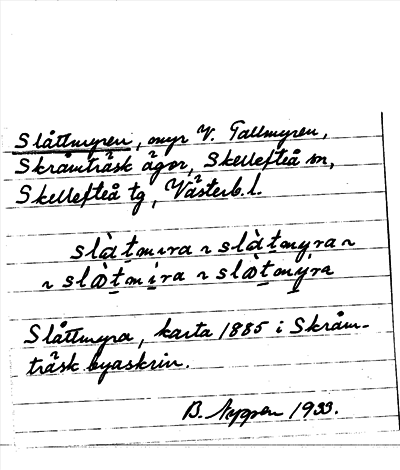 Slåttmyren, myr V. Tallmyren,
Skråmträsk ägor, Skellefteå sn,
Skellefteå tg, Västerb. l.
slàt̲mıra ~ slàt̲myra ~
~ slòt̲mi̲ra ~ slòt̲my̲ra
Slåttmyra, karta 1885 i Skråm-
träsk byaskrin.
B. Nygren 1933.